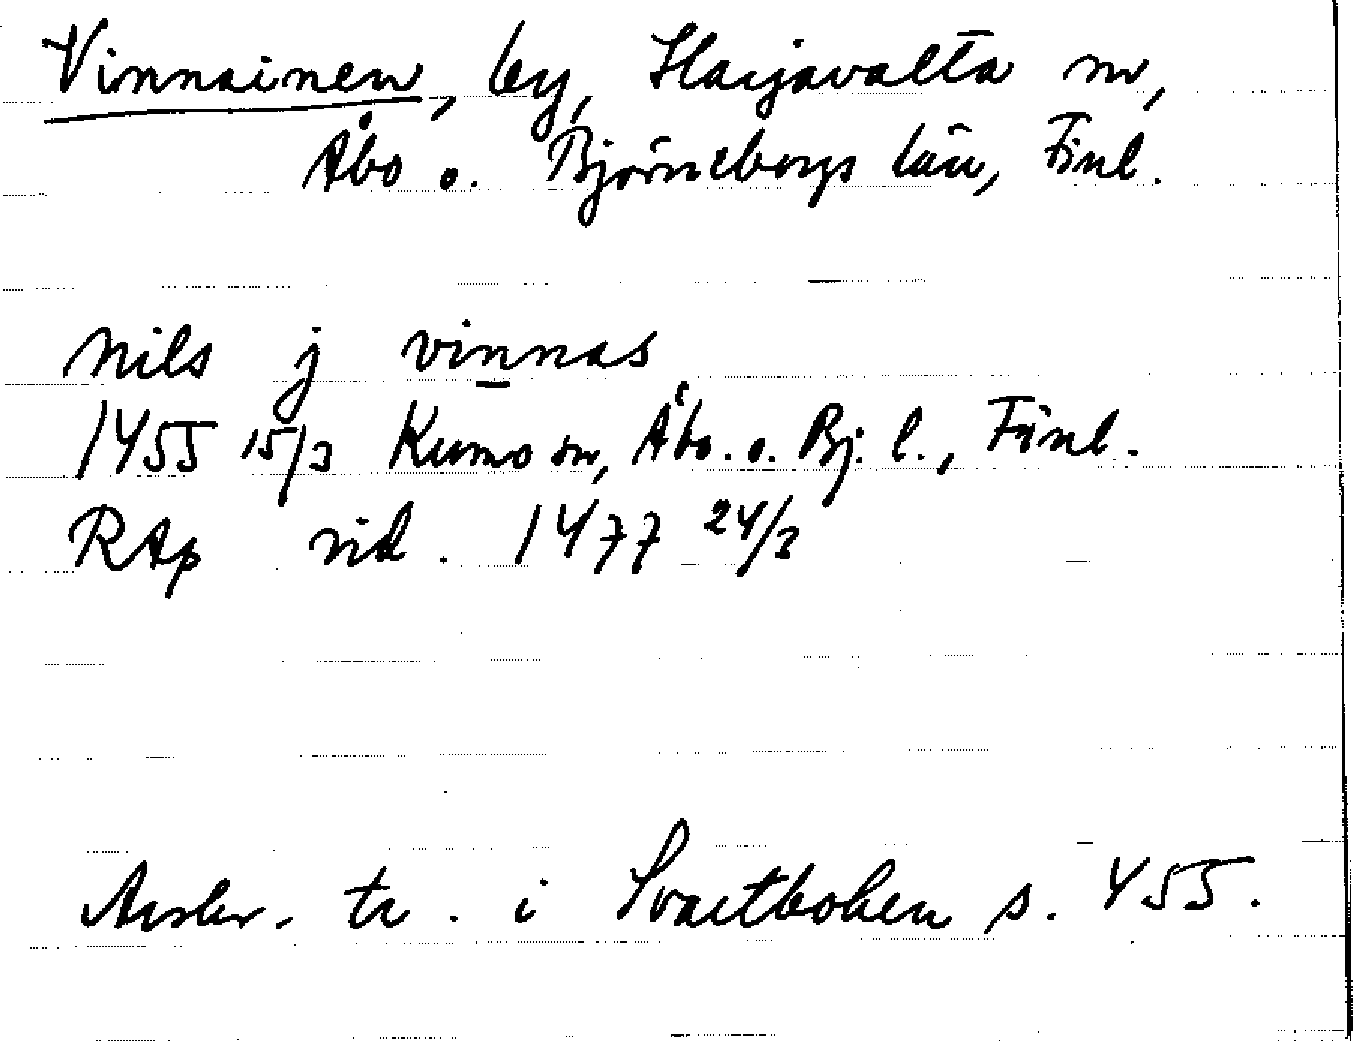 Vinnainen, by, Harjavalta sn,
Åbo o. Björneborgs län, Finl.
Nils j vinnas
1455 15/3 Kumo sn, Åbo. o. Bj. l., Finl.
RAp vid. 1477 24/3
Avskr. tr. i Svartboken s. 455.